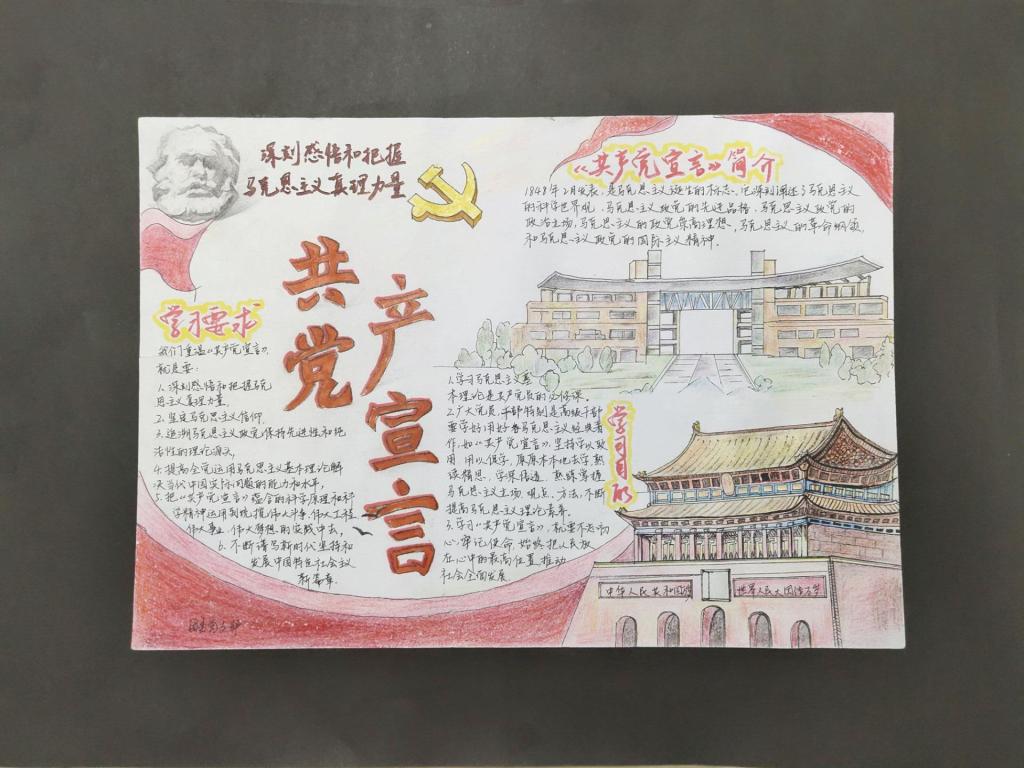 深刻感悟和把握
马克思主义真理力量
共产党宣言
《共产党宣言》简介
1848年2月发表,是马克思主义诞生的标志。它深刻阐述了马克思主义
的科学世界观,马克思主义政党的先进品格,马克思主义政党的
政治立场,马克思主义的政党崇高理想,马克思主义的革命纲领
和马克思主义政党的国际主义精神.
学习要求
我们重温《共产党宣言》,
就是要:
1.深刻感悟和把握马克
思主义真理力量.
2.坚定马克思主义信仰
3.追溯马克思主义政党保持先进性和纯
洁性的理论源头,
4.提高全党运用马克思主义基本理论解
决当代中国实际问题的能力和水平,
5.把《共产党宣言》蕴含的科学原理和科
学精神运用到统揽伟大斗争、伟大工程
伟大事业、伟大梦想的实践中去,
6.不断谱写新时代坚持和
发展中国特色社会主义
新篇章.
学习目的
1.学习马克思主义基
本理论是共产党员的必修课.
2.广大党员、干部特别是高级干部
要学好用好马克思主义经典著
作,如《共产党宣言》,坚持学以致
用、用以促学,原原本本地去学,熟
读精思、学深悟透,熟练掌握
马克思主义立场、观点、方法,不断
提高马克思主义理论素养.
3.学习《共产党宣言》,就要不忘初
心,牢记使命,始终把人民放
在心中的最高位置,推动
社会全面发展
中华人民共和国万岁
世界人民大团结万岁